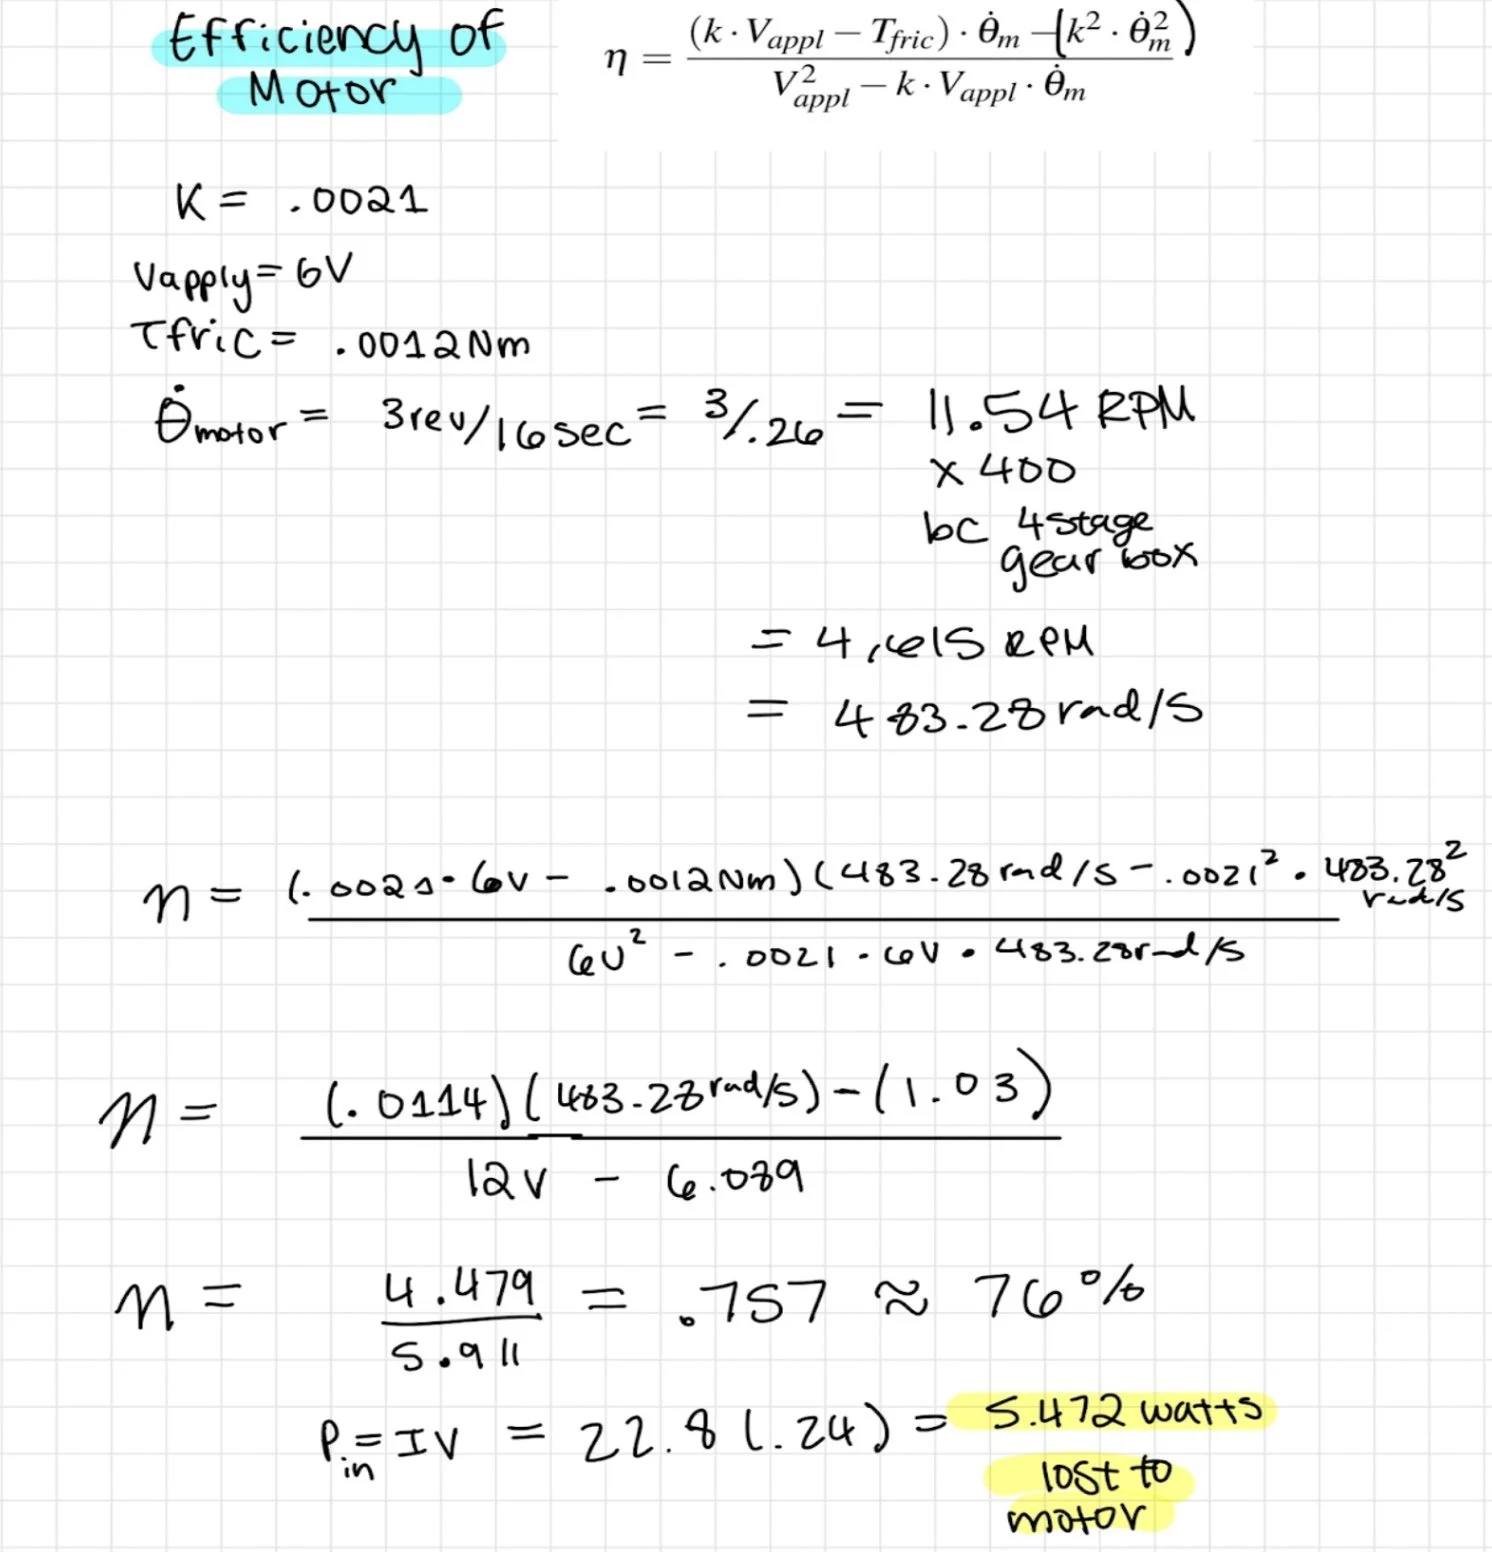 Efficiency of
Motor
η = (k · V_appl − T_fric) · θ̇_m − (k² · θ̇_m²) / V²_appl − k · V_appl · θ̇_m
K = .0021
Vapply = 6V
Tfric = .0012Nm
θ̇motor = 3rev/16sec = 3/.26 = 11.54 RPM
x 400
bc 4stage
gear box
= 4,615 RPM
= 483.28 rad/s
n = (.0021 · 6V − .0012Nm)(483.28 rad/s − .0021² · 483.28² rad/s
6V² − .0021 · 6V · 483.28rad/s
n = (.0114)(483.28 rad/s) − (1.03)
12V − 6.089
n = 4.479 / 5.911 = .757 ≈ 76%
P_in = IV = 22.8(.24) = 5.472 watts
lost to
motor